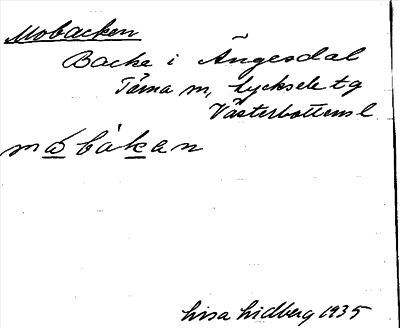 Mobacken
Backe i Ängesdal
Tärna sn, Lycksele tg
Västerbottens l
måbàkan
Lisa Lidberg 1935